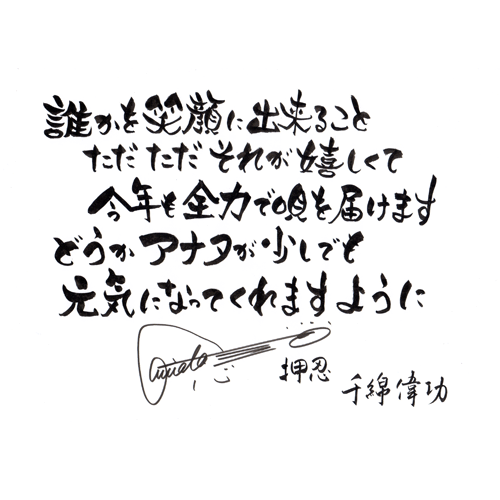 誰かを笑顔に出来ること
ただただそれが嬉しくて
今年も全力で唄を届けます
どうかアナタが少しでも
元気になってくれますように
押忍
千綿偉功